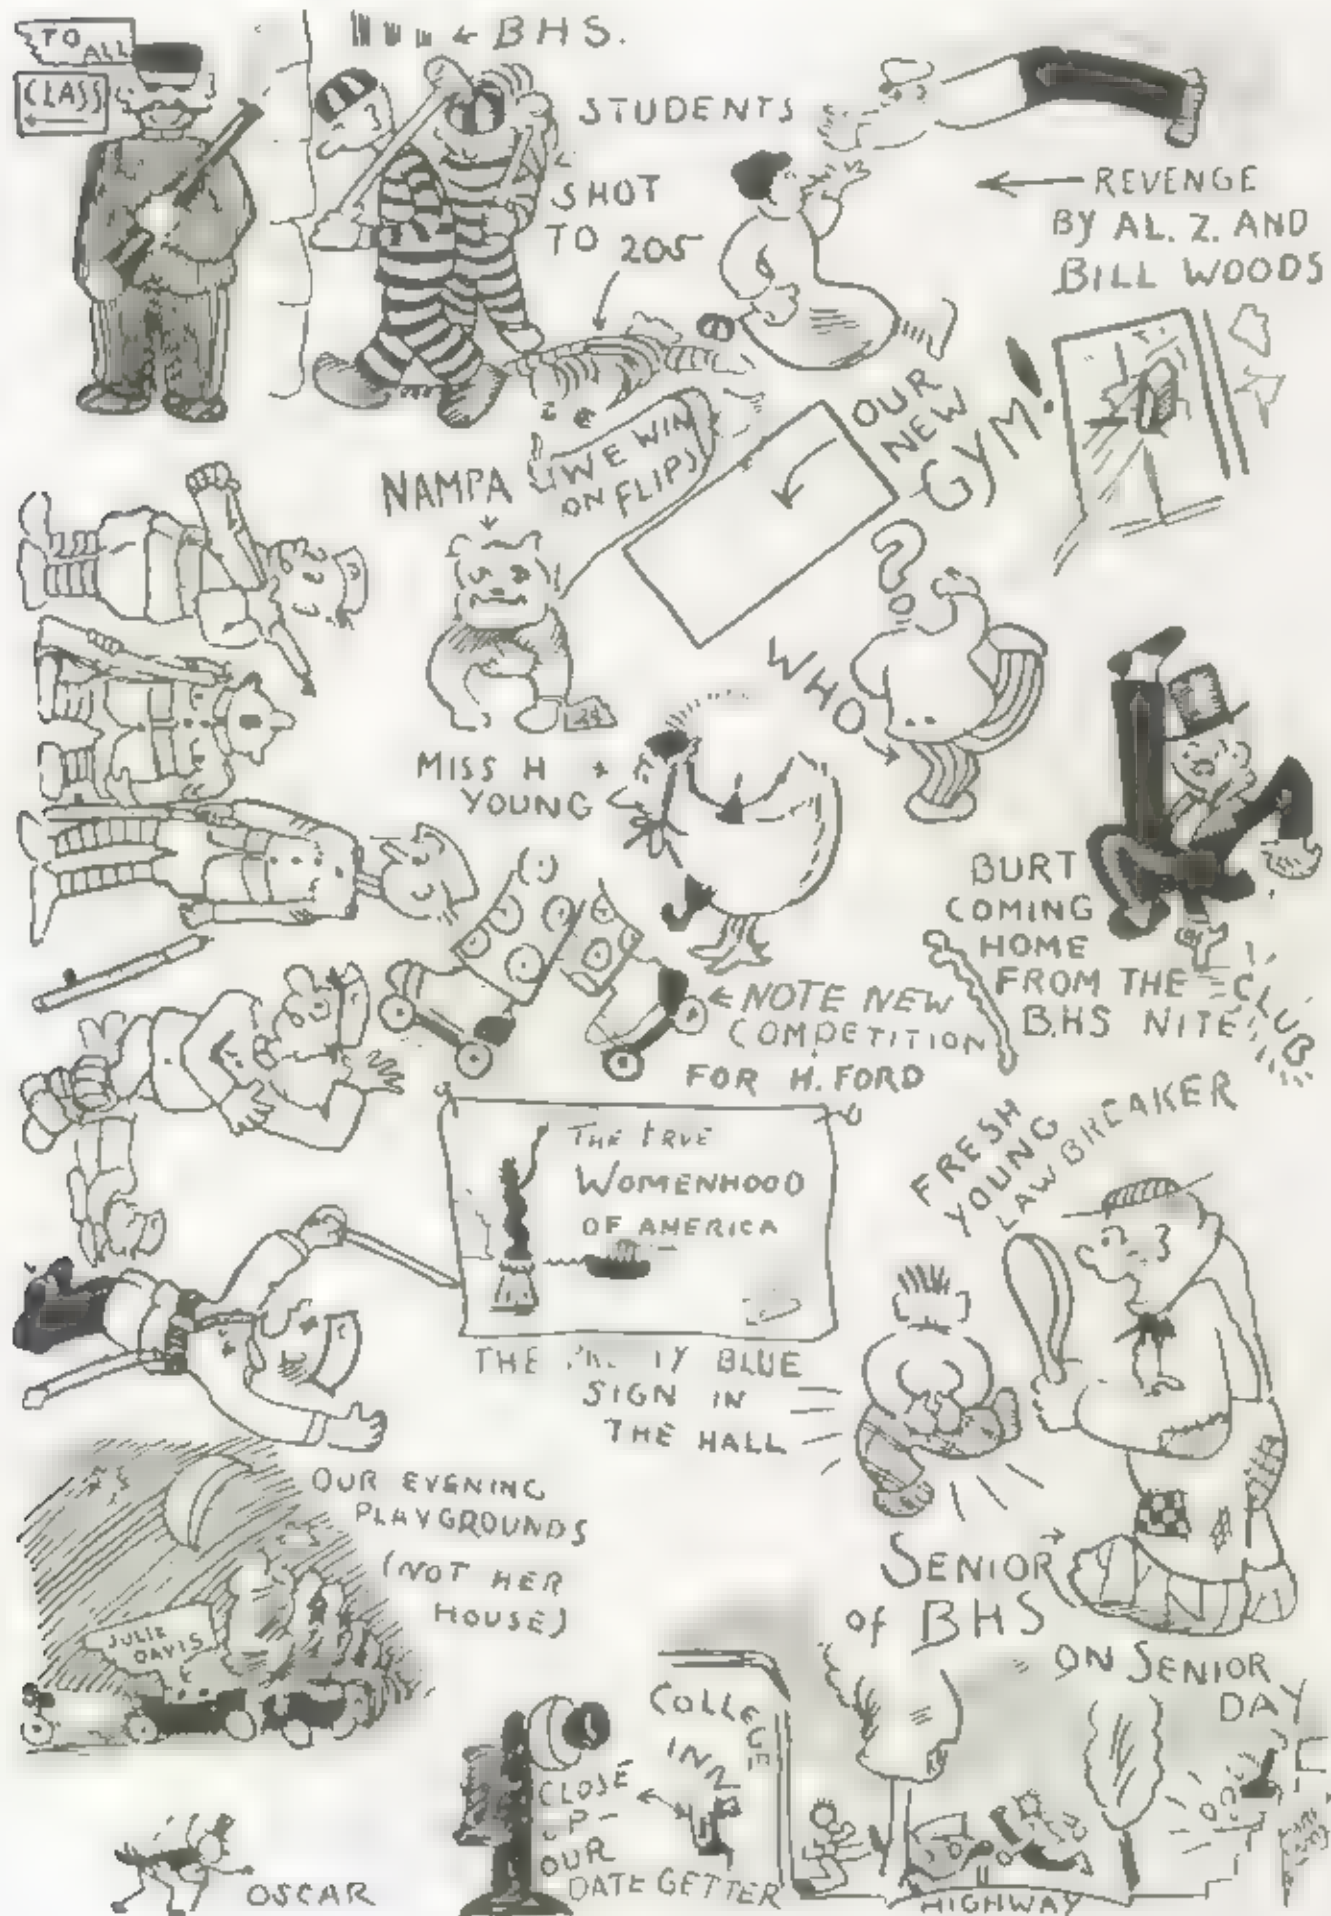 TO ALL
CLASS
BHS.
STUDENTS
SHOT
TO 205
REVENGE
BY AL. Z. AND
BILL WOODS
OUR
NEW
GYM!
WE WIN
ON FLIPS
NAMPA
?
WHO
MISS H
YOUNG
BURT
COMING
HOME
FROM THE
B.H.S NITE
CLUB
NOTE NEW
COMPETITION
FOR H. FORD
THE TRUE
WOMENHOOD
OF AMERICA
THE BLUE
SIGN IN
THE HALL
FRESH
YOUNG
LAW BREAKER
OUR EVENING
PLAYGROUNDS
(NOT HER
HOUSE)
JULIE
DAVIS
SENIOR
of BHS
ON SENIOR
DAY
COLLEGE
INN
CLOSE
UP-
OUR
DATE GETTER
HIGHWAY
OSCAR